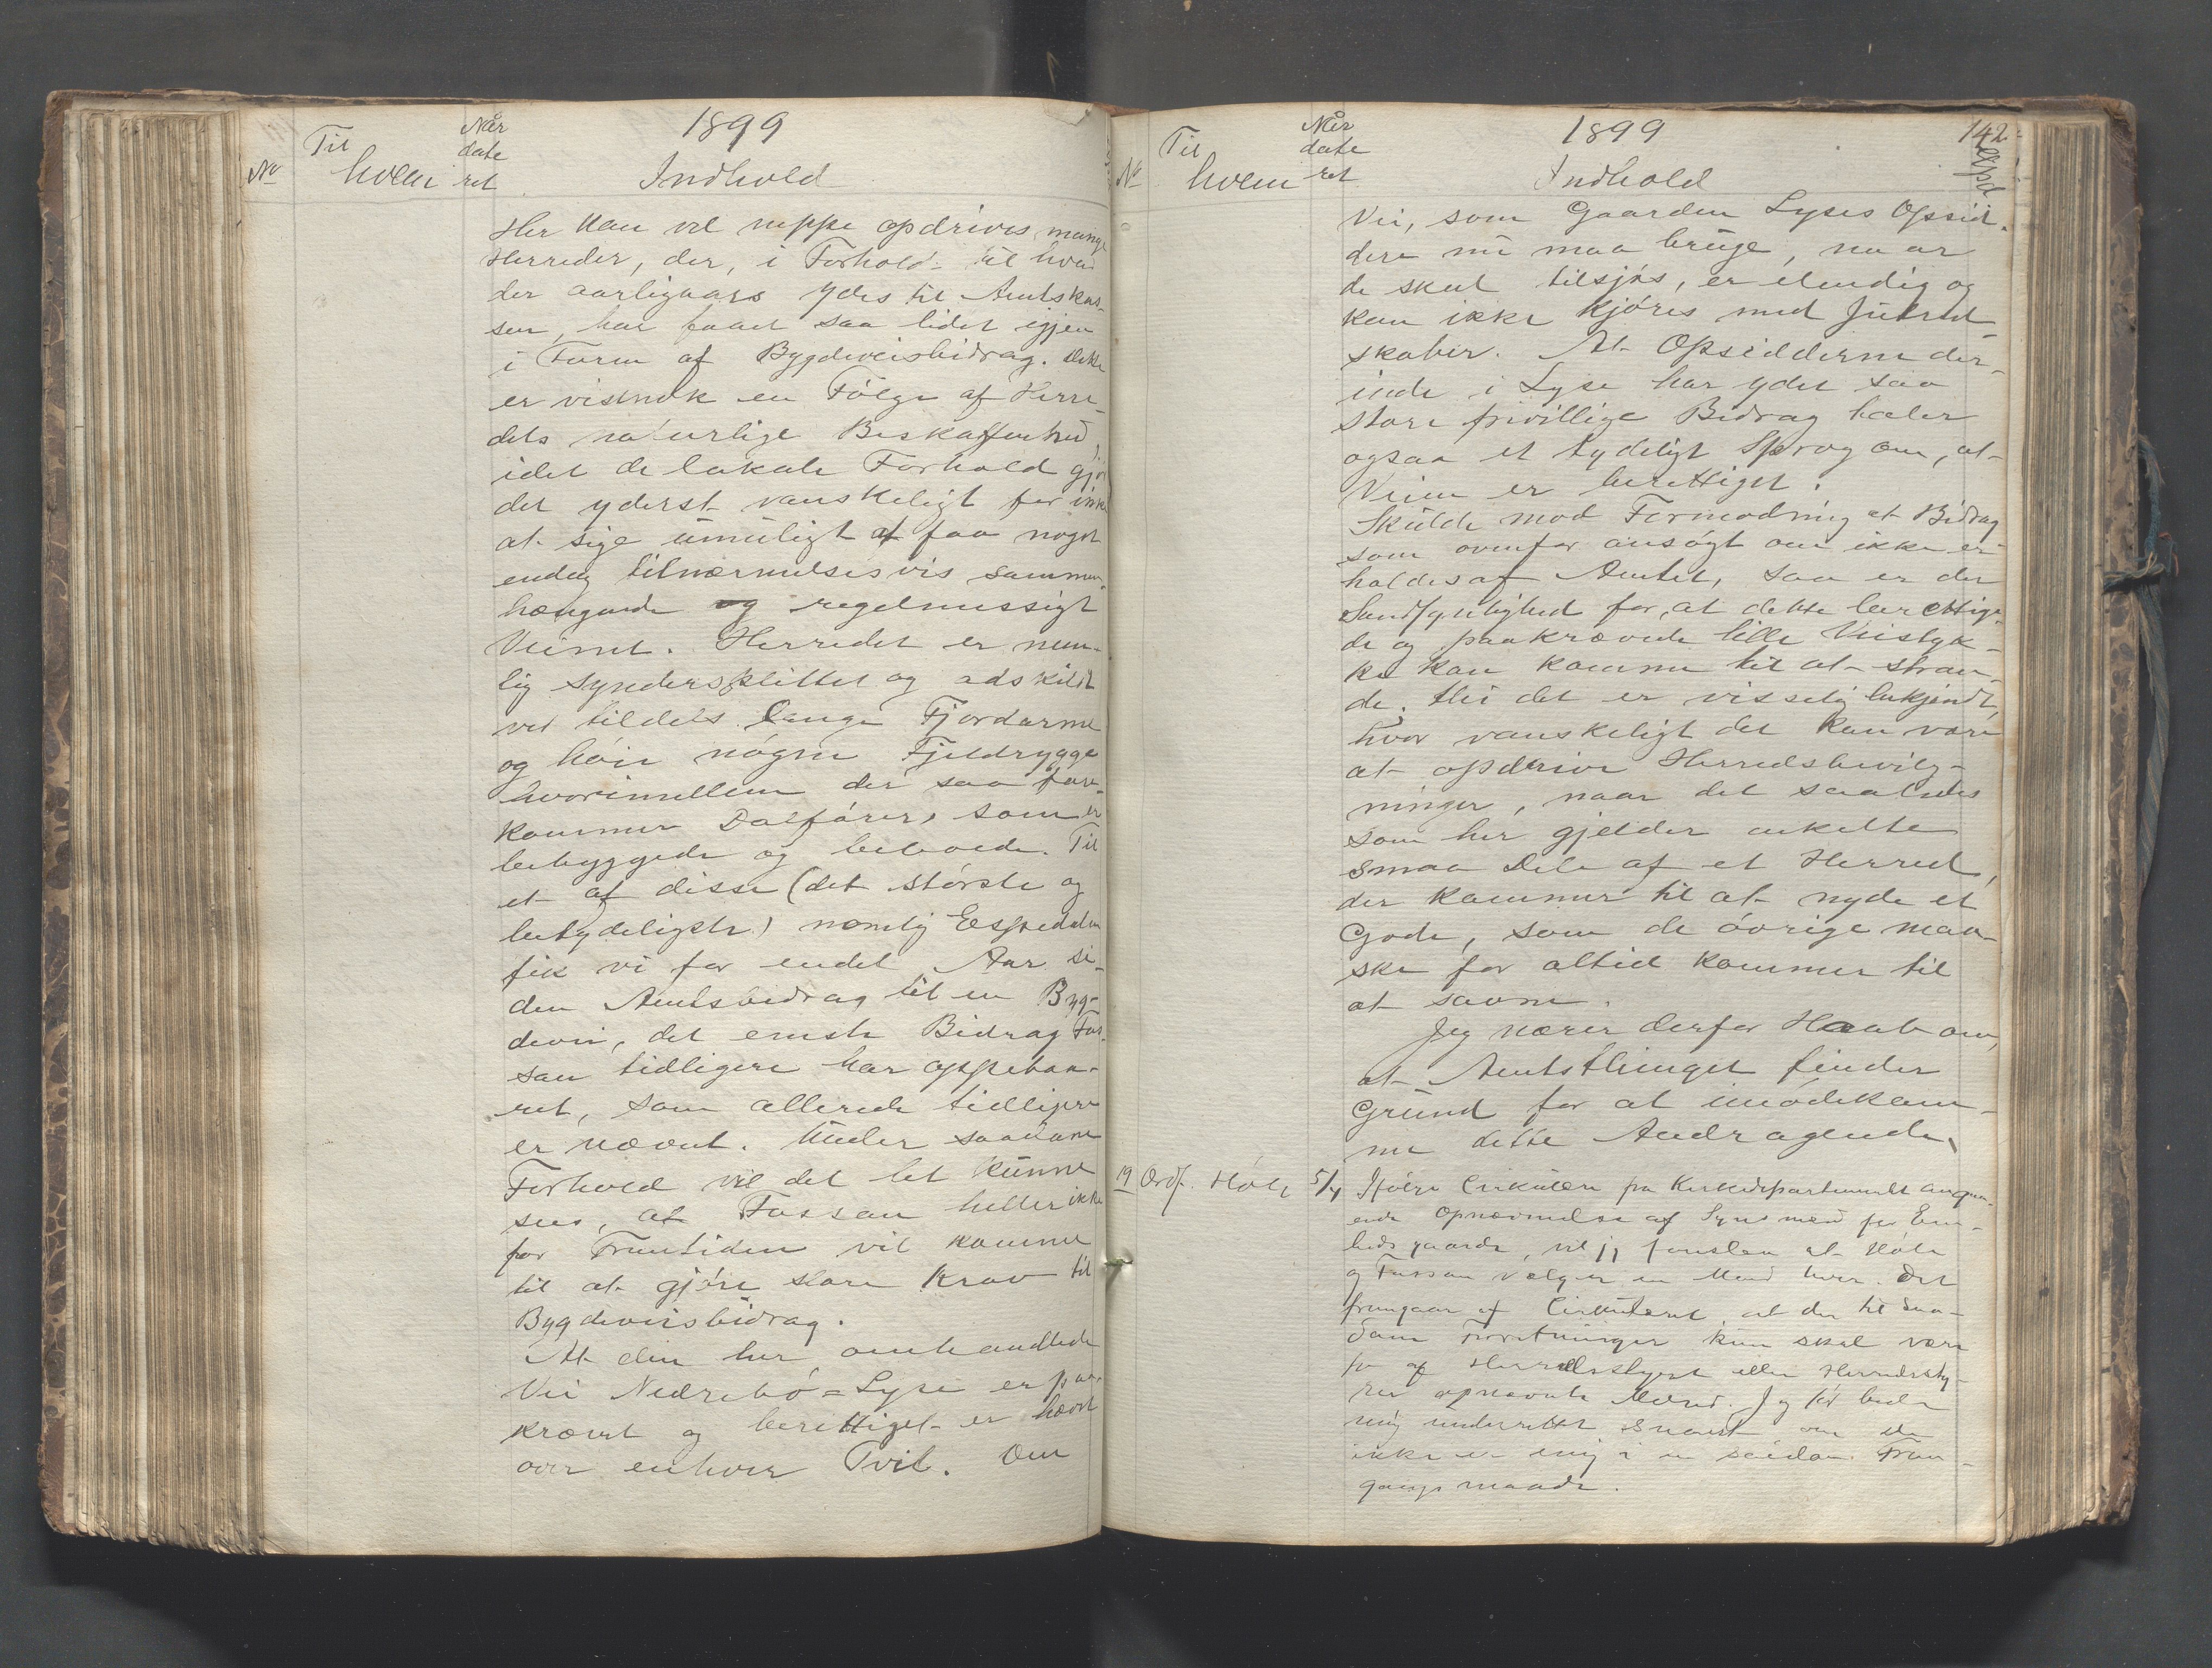 1899
Til Når
hvem date
No ret Indhold
Her kan vel neppe opdrives mange
Herreder, der, i Forhold til hvad
der aarligaars ydes til Amtskas-
sen, har faaet saa lidet igjen
i Form af Bygdeveisbidrag. Dette
er vistnok en Følge af Herre-
dets naturlige Beskaffenhed,
idet de lokale Forhold gjør
det yderst vanskeligt for ikke
at sige umuligt at faa noget
endog tilnærmelsesvis sammen-
hængende og regelmessigt
Veinet. Herredet er nem-
lig synderspittet og adskildt
ved tildels lange Fjordarme
og høie nøgne Fjeldrygge
hvorimellem der saa fore-
kommer Dalfører, som er
bebyggede og beboede. Til
et af disse (det største og
betydeligste) nemlig Espedalen
fik vi for endel Aar si-
den Amtsbidrag til en Byg-
devei, det eneste Bidrag Fos-
san tidligere har oppebaa-
ret, som allerede tidligere
er nævnt. Under saadanne
Forhold vil det let kunne
sees, at Fossan heller ikke
for Fremtiden vil komme
til at gjøre store Krav til
Bygdeveisbidrag.
At den her omhandlede
Vei Nedrebø=Lyse er paa-
krævet og berettiget er hævet
over enhver Tvil. Den
1899 142
Til Når
hvem date
No ret Indhold
Vei, som Gaarden Lyses Opsid-
dere nu maa bruge, naar
de skal tilsjøs, er elendig og
kan ikke kjøres med Hjulred-
skaber. At Opsidderne der-
inde i Lyse har ydet saa
store frivillige Bidrag taler
ogsaa et tydeligt Sprog om, at
Veien er berettiget.
Skulde mod Formodning et Bidrag
som ovenfor ansøgt om ikke er-
holdes af Amtet, saa er der
Sandsynlighed for, at dette berettige-
de og paakrævede lille Veistyk-
ke kan komme til at stran-
de. Thi det er visselig bekjendt,
hvor vanskeligt det kan være
at opdrive Herredsbevilg-
ninger, naar det saaledes
som her gjelder enkelte
smaa Dele af et Herred,
der kommer til at nyde et
Gode, som de øvrige maa-
ske for altid kommer til
at savne.
Jeg nærer derfor Haab om,
at Amtsthinget finder
Grund for at imødekom-
me dette Andragende.
19 Ordf. Høle 5/4 Ifølge Cirkulære fra Kirkedepartementet angaa-
ende Opnævnelse af Synsmend for Em-
bedsgaarde, vil jeg foreslaa at Høle
og Fossan vælger en Mand hver. Det
fremgaar af Cirkulæret, at der til saa-
danne Forretninger kun skal være
to af Herredsstyret eller Herredssty-
ret opnævnte Mænd. Jeg tør bede
mig underrettet snarest, om De
ikke er enig i en saadan Frem-
gangsmaade.